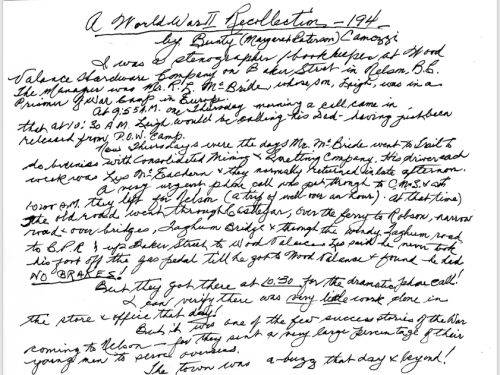 A World War II Recollection - 194
by Bunty (Margaret Paterson) Camozzi
I was a stenographer / bookkeeper at Wood
Valance Hardware Company on Baker Street in Nelson, B.C.
The Manager was Mr. R.L. McBride, whose son, Leigh, was in a
Prisoner of War Camp in Europe.
At 9:55 A.M. one Thursday morning a call came in
that at 10:30 A.M. Leigh would be calling his Dad - having just been
released from P.O.W. Camp.
Now Thursdays were the days Mr. McBride went to Trail to
do business with Consolidated Mining & Smelting Company. His driver each
week was Les McEachern & they normally returned in late afternoon.
A very urgent phone call was put through to C.M.&S. & at
10:00 A.M. they left for Nelson (a trip of well over an hour). at that time)
The old road went through Castlegar, over the ferry to Robson, narrow
road & over bridges, Taghum Bridge & through the windy Taghum road
to C.P.R. & up Baker Street to Wood Valance. Les said he never took
his foot off the gas pedal till he got to Wood Valance & found he had
NO BRAKES!
But they got there at 10.30 for the dramatic phone call!
I can verify there was very little work done in
the store & office that day!
But it was one of the few success stories of the War
coming to Nelson - for they sent a very large percentage of their
young men to serve overseas.
The town was a-buzz that day & beyond!